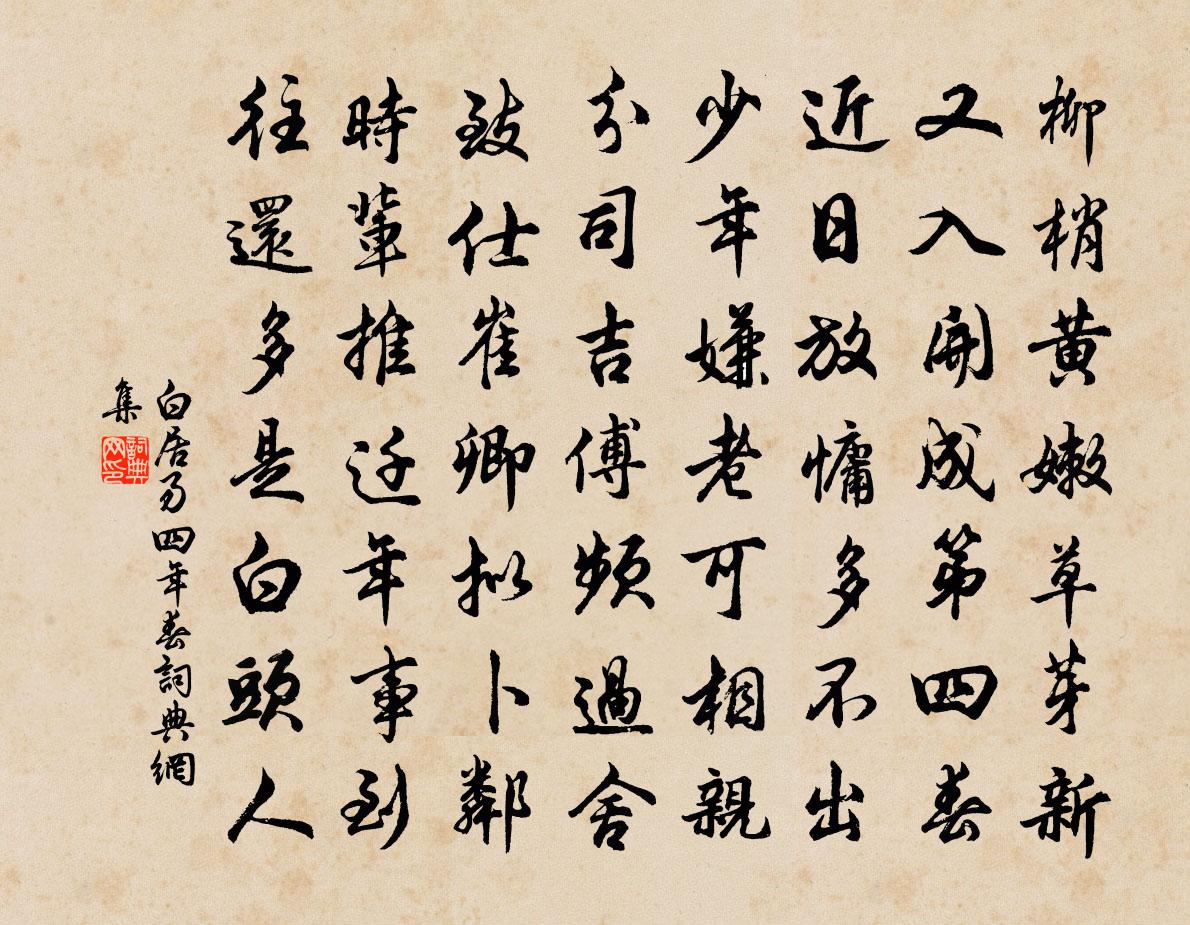 柳梢黄嫩草芽新
又入開成第四春
近日放慵多不出
少年嫌老可相親
分司吉傅頻過舍
致仕崔卿拟卜鄰
時輩推迁年事到
往還多是白頭人
白居易四年春詞典網
集
詞典
网印